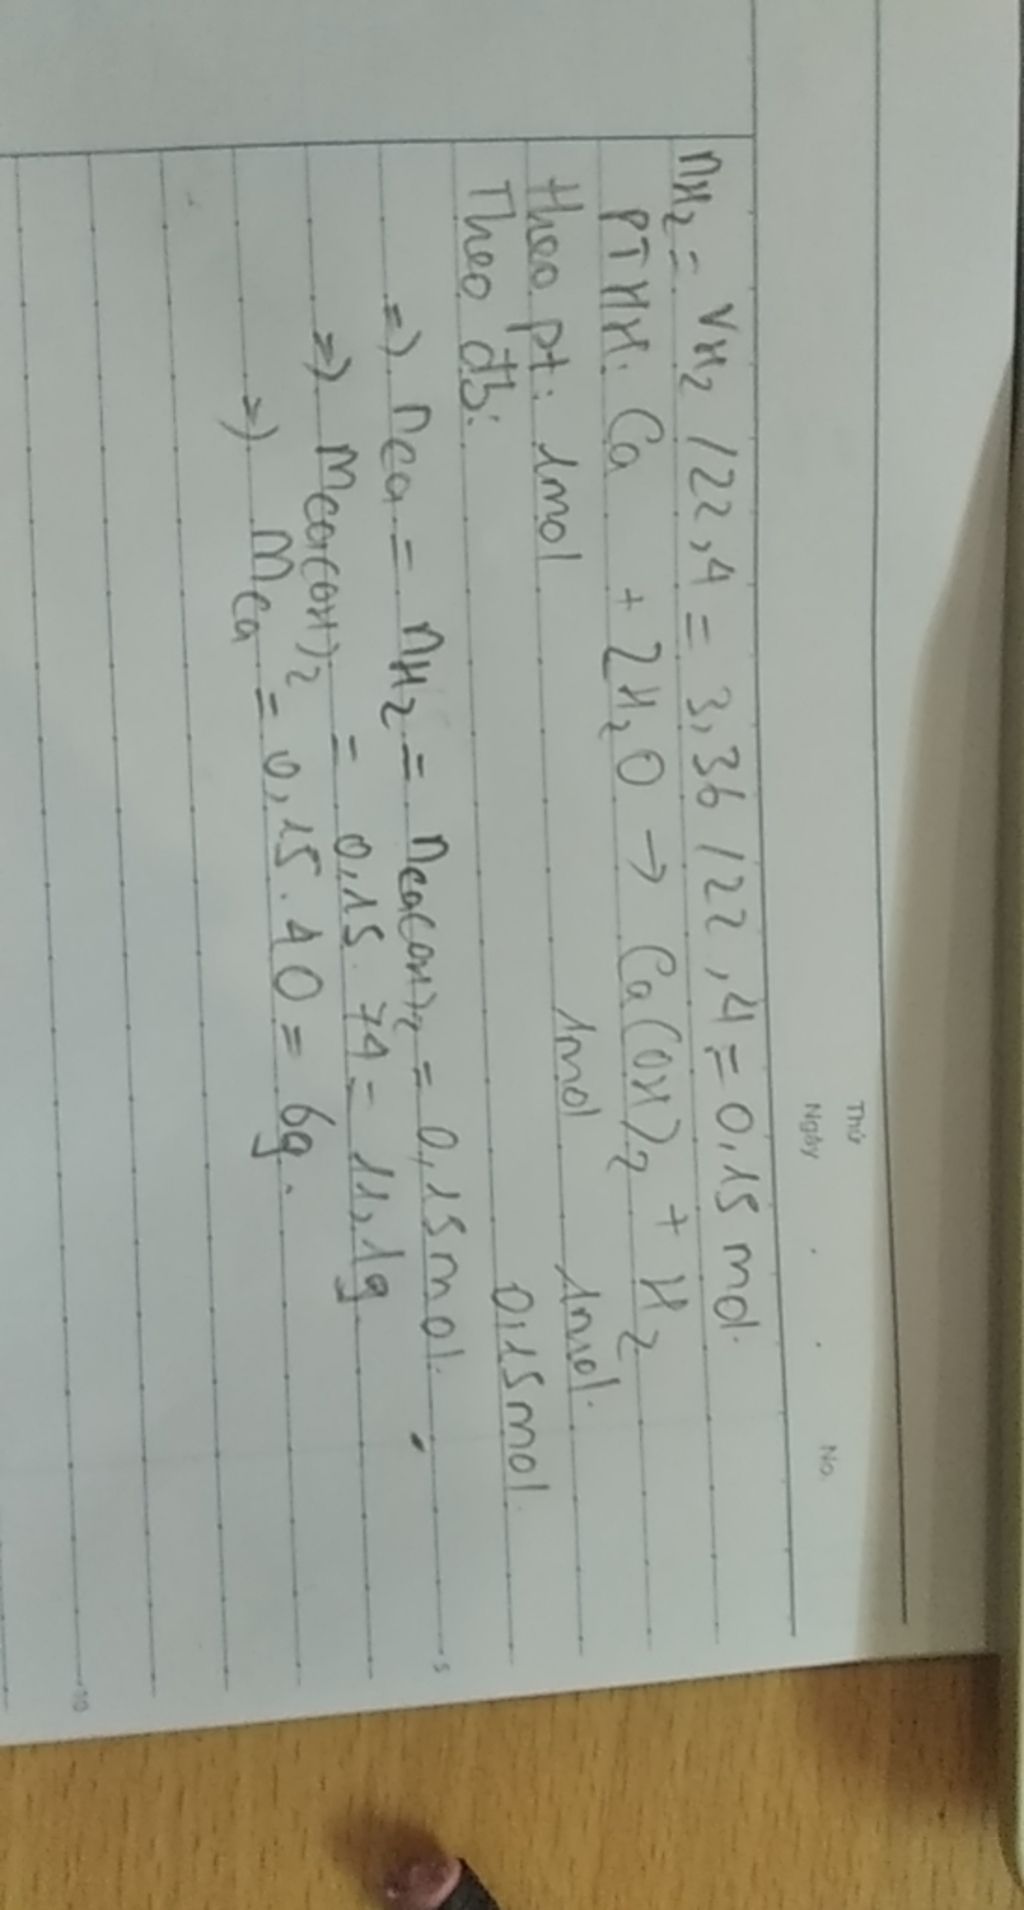 Thứ
Ngày . . No.
nH₂ = VH₂ / 22,4 = 3,36 / 22,4 = 0,15 mol.
PTHH: Ca + 2H₂O → Ca(OH)₂ + H₂
theo pt: 1mol 1mol 1mol.
Theo đb: 0,15mol.
=> nCa = nH₂ = nCa(OH)₂ = 0,15mol.
=> mCa(OH)₂ = 0,15. 74 = 11,1g.
=> mCa = 0,15. 40 = 6g.
5
10